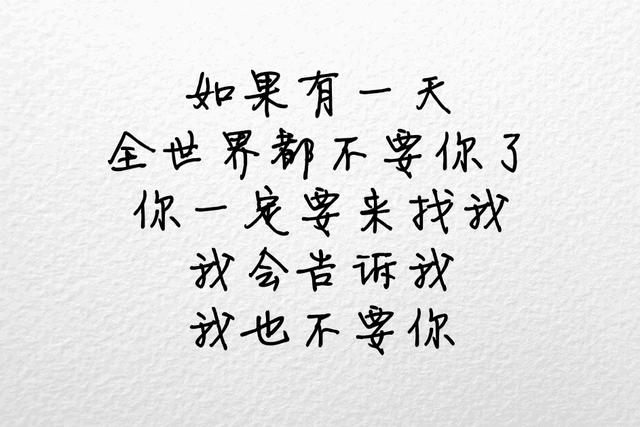 如果有一天
全世界都不要你了
你一定要来找我
我会告诉我
我也不要你